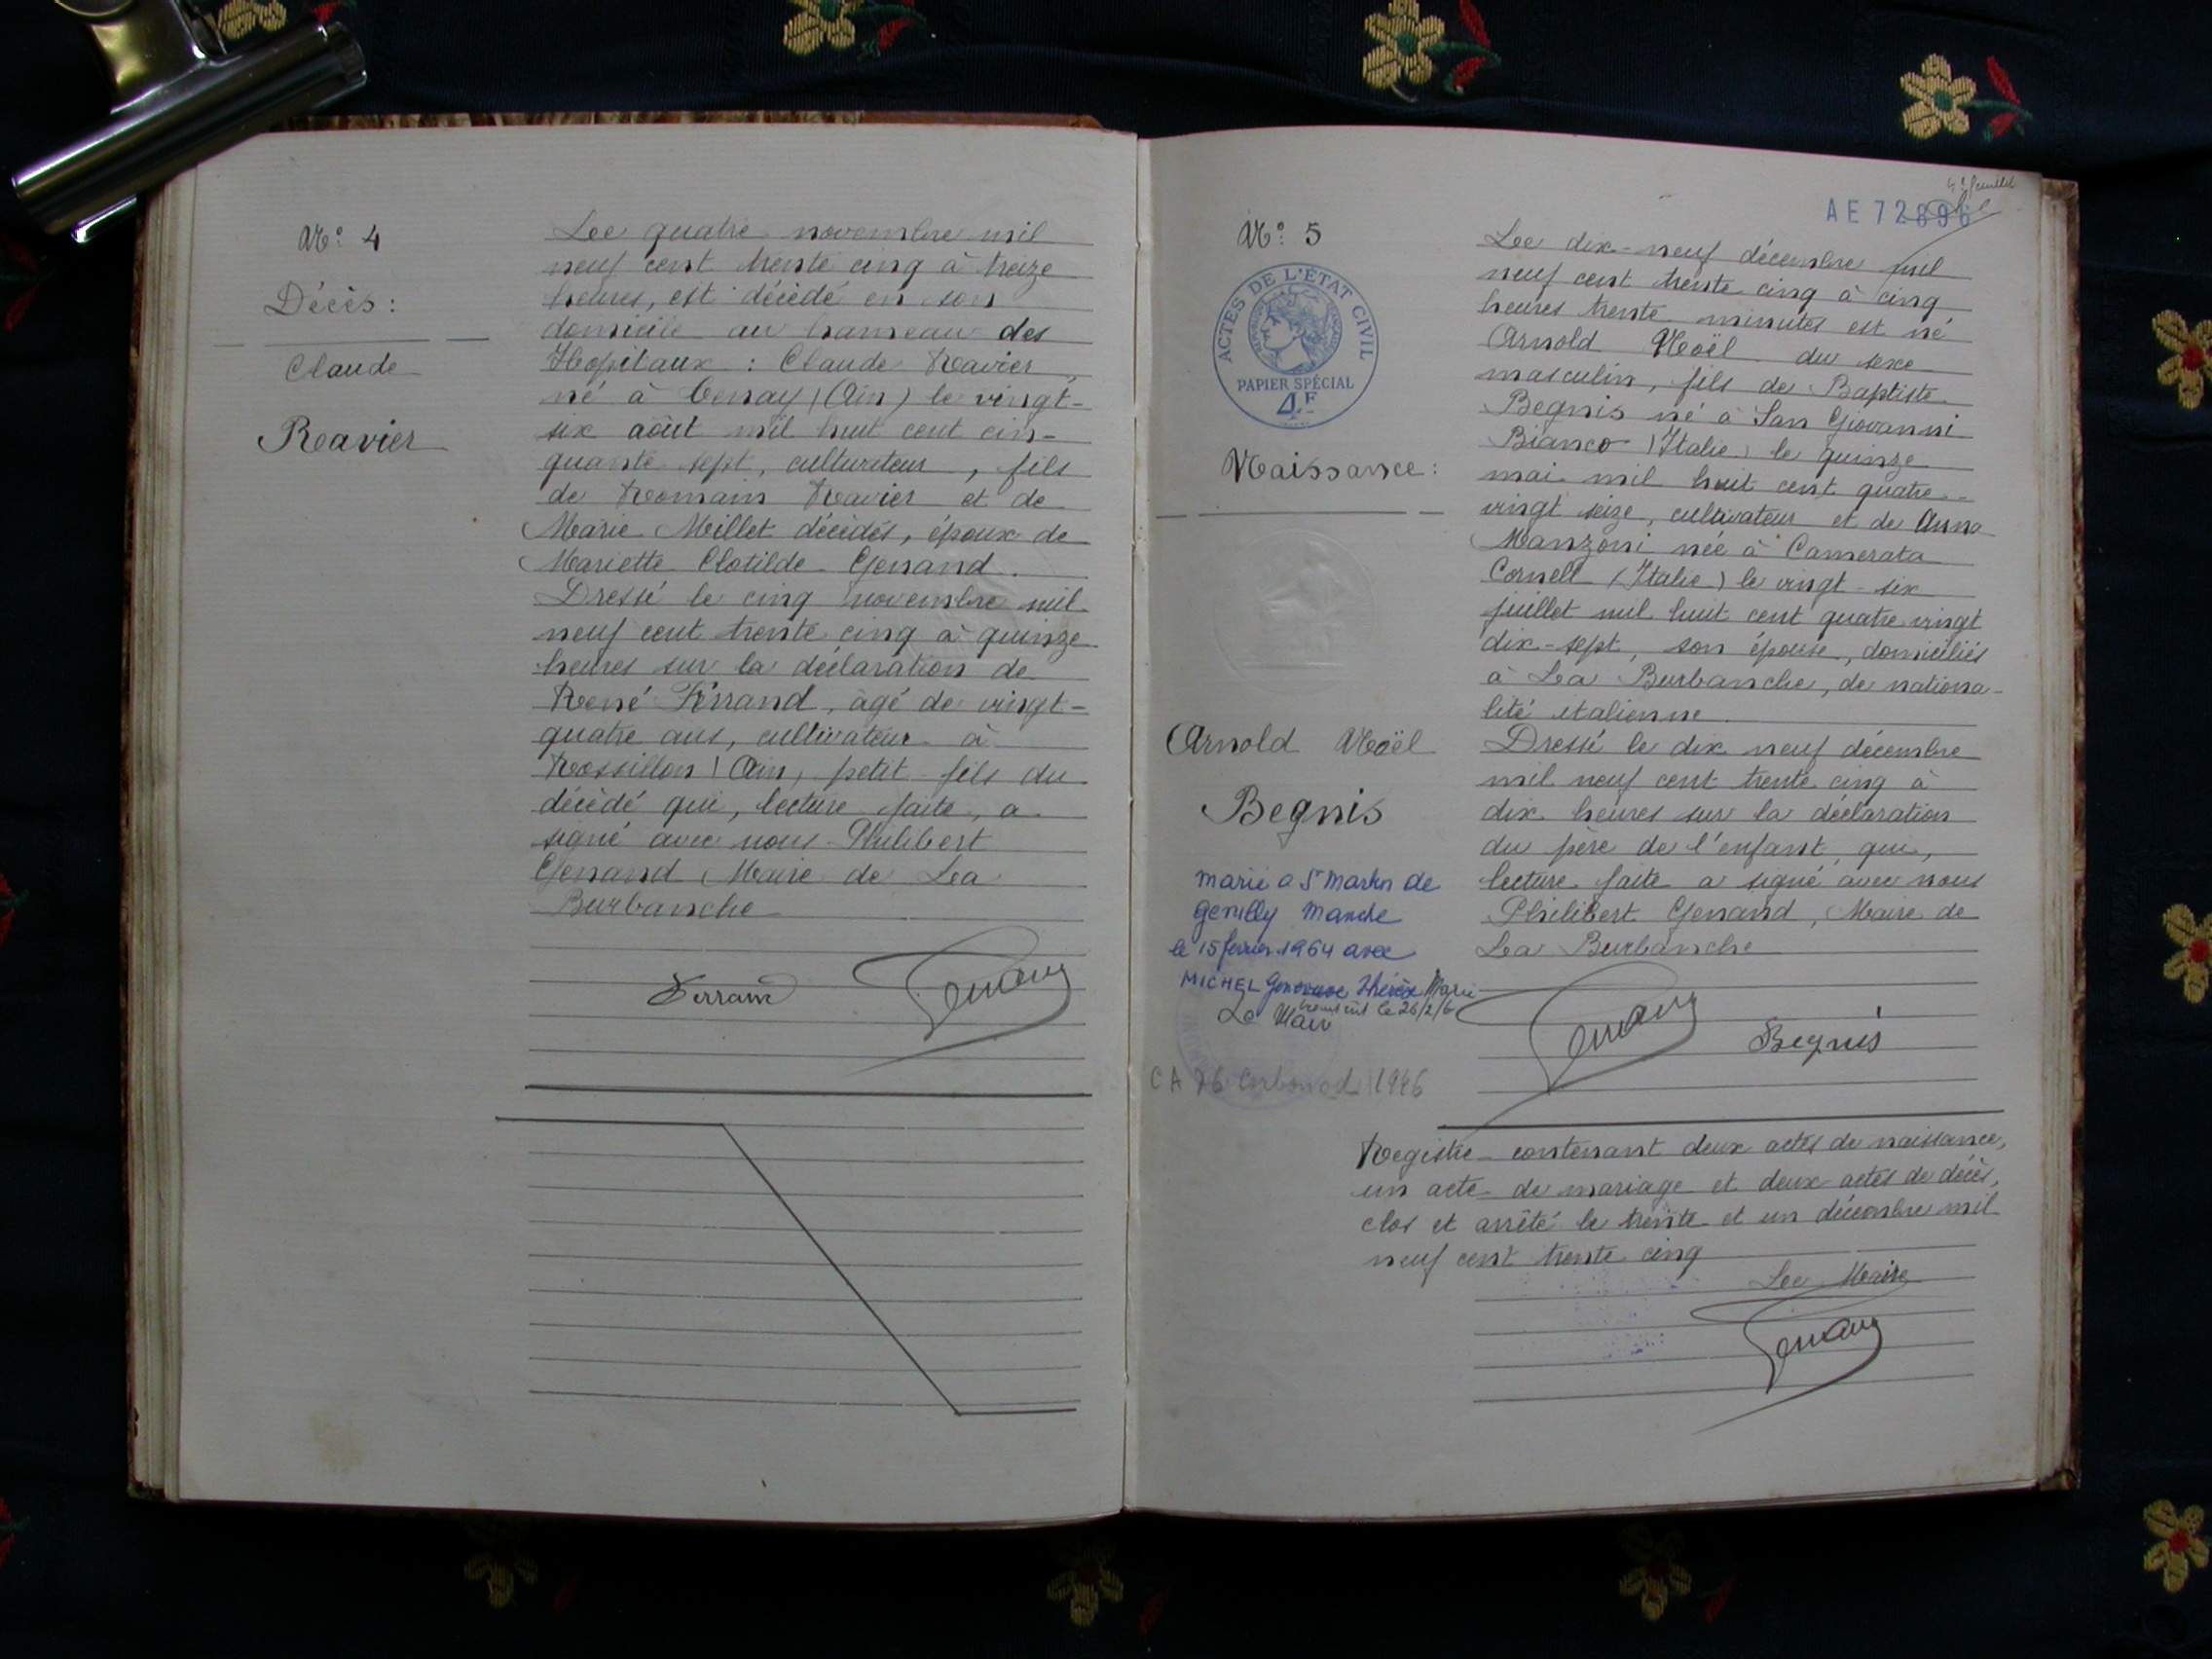 N° 4
Décès :
Claude
Ravier
Le quatre novembre mil
neuf cent trente cinq à treize
heures, est décédé en son
domicile au hameau des
Hopitaux : Claude Ravier,
né à Tenay (Ain) le vingt-
six août mil huit cent cin-
quante sept, cultivateur, fils
de Romain Ravier et de
Marie Millet décédés, époux de
Mariette Clotilde Genand.
Dressé le cinq novembre mil
neuf cent trente cinq à quinze
heures sur la déclaration de
René Ferrand, âgé de vingt-
quatre ans, cultivateur à
Rossillon (Ain) petit-fils du
décédé qui, lecture faite, a
signé avec nous Philibert
Genand Maire de La
Burbanche
Ferrand
Genand
4e feuillet
AE 72896
N° 5
ACTES DE L'ÉTAT CIVIL
PAPIER SPÉCIAL
4F
Naissance :
Arnold Noël
Begnis
marié a St Martin de
le 15 février 1964 avec
MICHEL Geneviève Thérèse Marie
Le Maire
CA 26 Corbonod 1946
Le dix-neuf décembre mil
neuf cent trente cinq à cinq
heures trente minutes est né
Arnold Noël du sexe
masculin, fils de Baptiste
Begnis né à San Giovanni
Bianco (Italie) le quinze
mai mil huit cent quatre-
vingt seize, cultivateur et de Anna
Manzoni née à Camerata
Cornell (Italie) le vingt-six
juillet mil huit cent quatre vingt
dix-sept, son épouse, domiciliés
à La Burbanche, de nationa-
lité italienne.
Dressé le dix neuf décembre
mil neuf cent trente cinq à
dix heures sur la déclaration
du père de l'enfant qui,
lecture faite a signé avec nous
Philibert Genand, Maire de
La Burbanche
Genand
Begnis
Registre contenant deux actes de naissance,
un acte de mariage et deux actes de décès,
clos et arrêté le trente et un décembre mil
neuf cent trente cinq
Le Maire
Genand